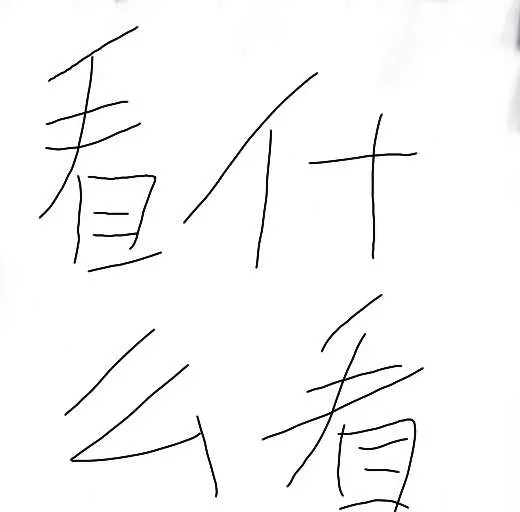 看什
么看